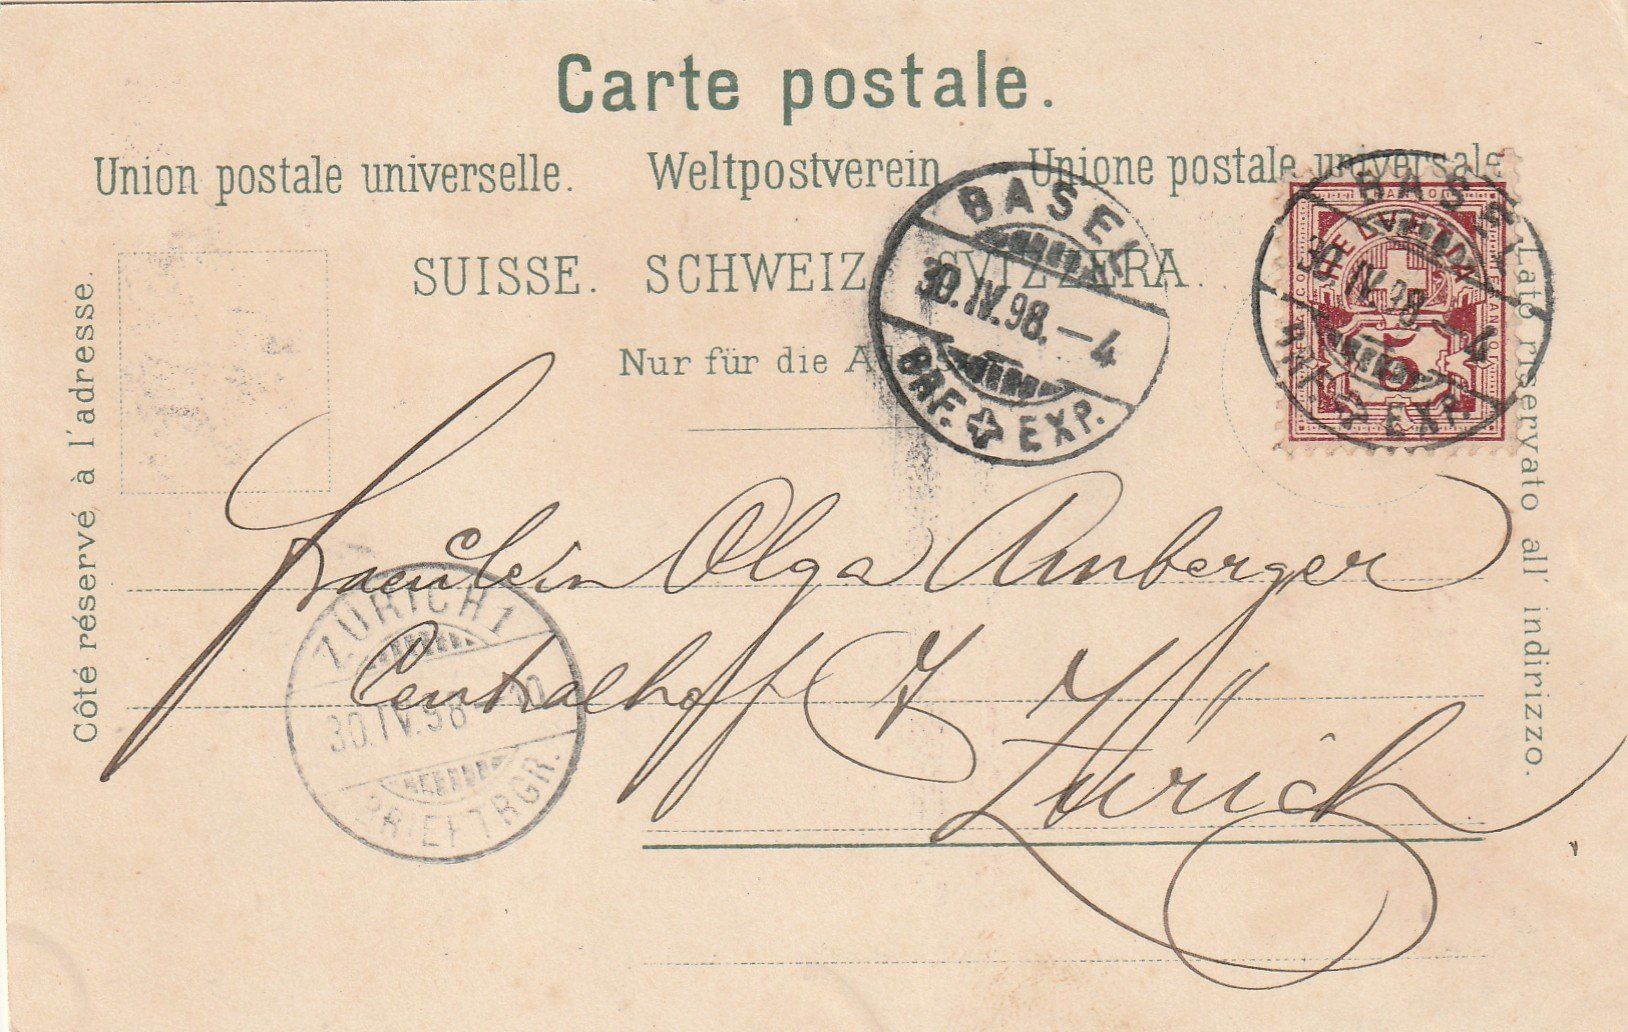 Carte postale.
Union postale universelle. Weltpostverein Unione postale universale
SUISSE. SCHWEIZ SVIZZERA.
Nur für die A
Côté réservé à l'adresse.
Lato riservato all' indirizzo.
BASEL
30.IV.98.–4
BRF. EXP.
BASEL
30.IV.98.–4
BRF. EXP.
HELVETIA
5
Fraeulein Olga Amberger
Centralhof
Zürich
ZÜRICH 1
30.IV.98–10
BRIEFTRGR.